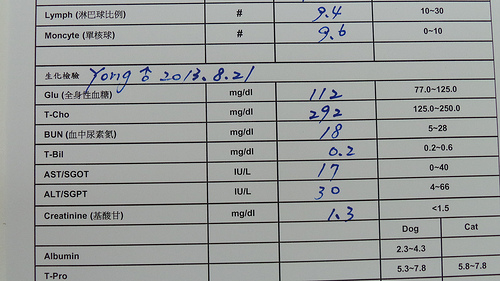 Lymph (淋巴球比例) # 9.4 10~30
Moncyte (單核球) # 9.6 0~10
生化檢驗 Yong ♂ 2013.8.21
Glu (全身性血糖) mg/dl 112 77.0~125.0
T-Cho mg/dl 292 125.0~250.0
BUN (血中尿素氮) mg/dl 18 5~28
T-Bil mg/dl 0.2 0.2~0.6
AST/SGOT IU/L 17 0~40
ALT/SGPT IU/L 30 4~66
Creatinine (基酸甘) mg/dl 1.3 <1.5
Dog Cat
Albumin 2.3~4.3
T-Pro 5.3~7.8 5.8~7.8